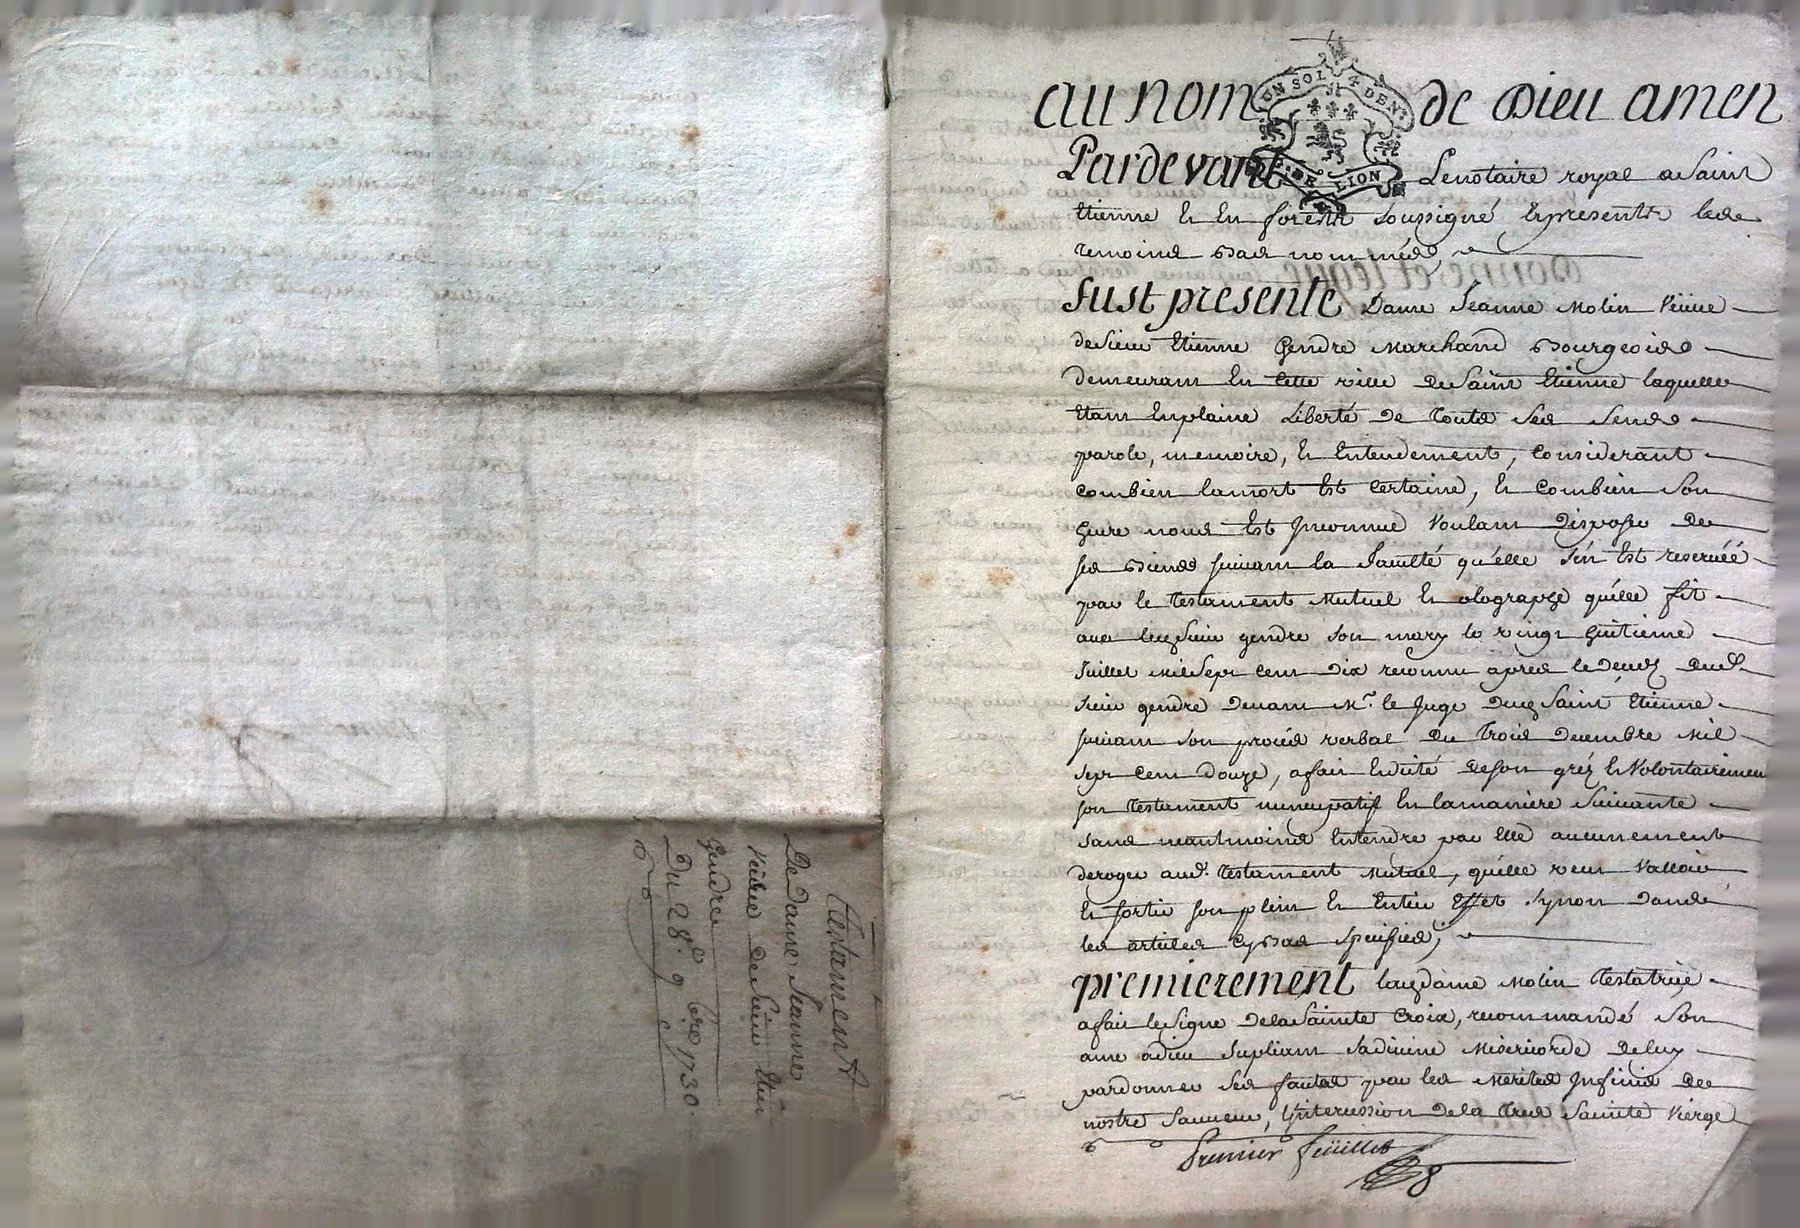 Testament
De Dame Jeanne
Veuve de Sieur
Gendre
Du 28e 9bre 1730.
UN SOL 4 DEN.
G. DE LION
au nom de Dieu amen
Pardevant Le notaire royal a Saint
Etienne En En forestz soussigné Et presents les
temoins bas nommés,
fust presente Dame Jeanne Molin Veüue
de Sieur Etienne Gendre Marchand Bourgeois
demeurant En cette ville de Saint Etienne laquelle
Etant En plaine Liberté de touts ses sens
parole, memoire, Et Entendement, considerant
combien la mort Est certaine, Et combien son
heure nous Est Inconnue voulant disposer de
ses biens suivant la faculté qu'elle s'én Est reservéé
par le testament Mutuel Et olographe quélle fit
avec ledt Sieur gendre son mary le vingt huitieme
Juillet Mil Sept cent dix reconnu aprés le deceds dudt
Sieur gendre devant Mr. le Juge dudt Saint Etienne
suivant son procés verbal du trois decembre Mil
sept cent douze, a fait Et dité de son gréz Et volontairement
son testament nuncupatif En la maniere suivante
sans neantmoins Entendre par Elle aucunement
deroger aud. testament Mutuel, quélle veut valloir
Et sortir son plein Et Entier Effet synon dans
les articles cy bas specifiés,
premierement ladt dame Molin testatrice
a fait le signe de la Sainte Croix, recommandé son
ame a dieu supliant sa divine Misericorde de luy
pardonner ses fautes par les Merites Infinis de
nostre Sauveur, l'intercession de la tres Sainte Vierge
Premier feüillet